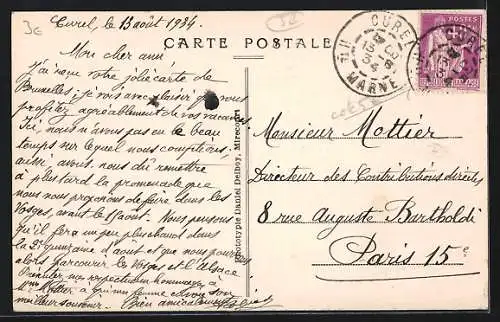 3E
Curel, le 13 août 1934.
CARTE POSTALE
Mon cher ami
J'ai reçu votre jolie carte de
Bruxelles ; je vois avec plaisir que vous
profitez agréablement de vos vacances
Ici, nous n'avons pas eu le beau
temps sur lequel nous comptions
aussi avons-nous dû remettre
à plus tard la promenade que
nous nous proposions de faire dans les
Vosges, avant le 15 août. Nous pensons
qu'il fera un peu plus chaud dans
la 2e quinzaine d'août et que nous pourrons
alors parcourir les Vosges et l'Alsace
Présenter nos respectueux hommages à
Mme Mottier, à qui ma femme envoie son
meilleur souvenir. Bien amicalement
Phototypie Daniel Delboy, Mirecourt
CUREL
Hte MARNE
POSTES
Monsieur Mottier
Directeur des Contributions directes
8 rue Auguste Bartholdi
Paris 15e